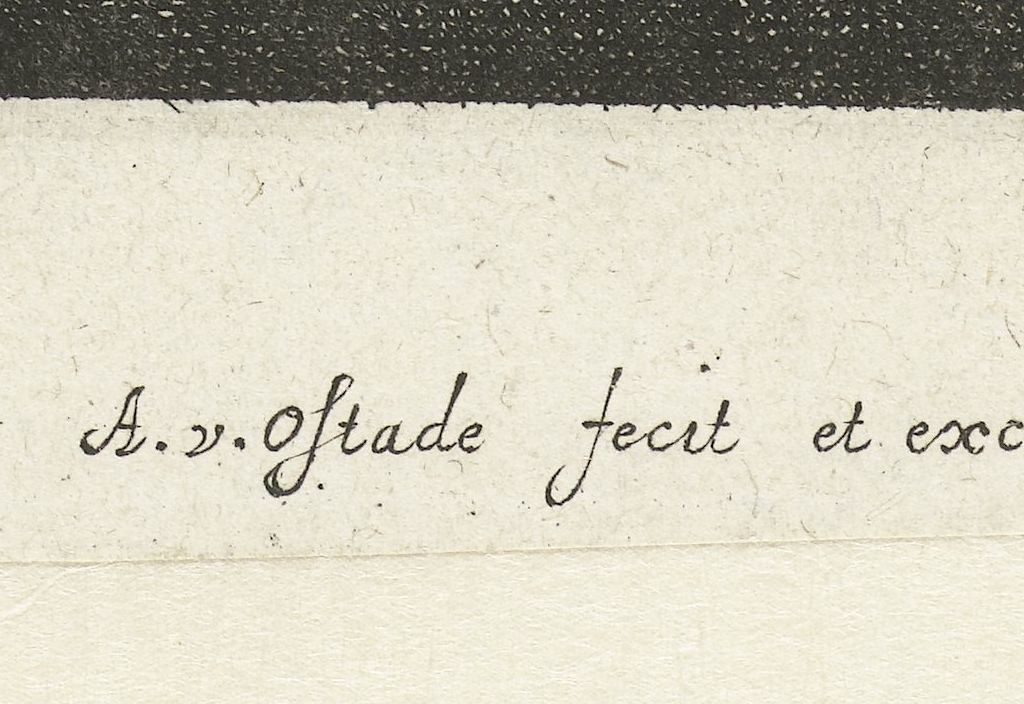 A. v. Oſtade fecit et exc